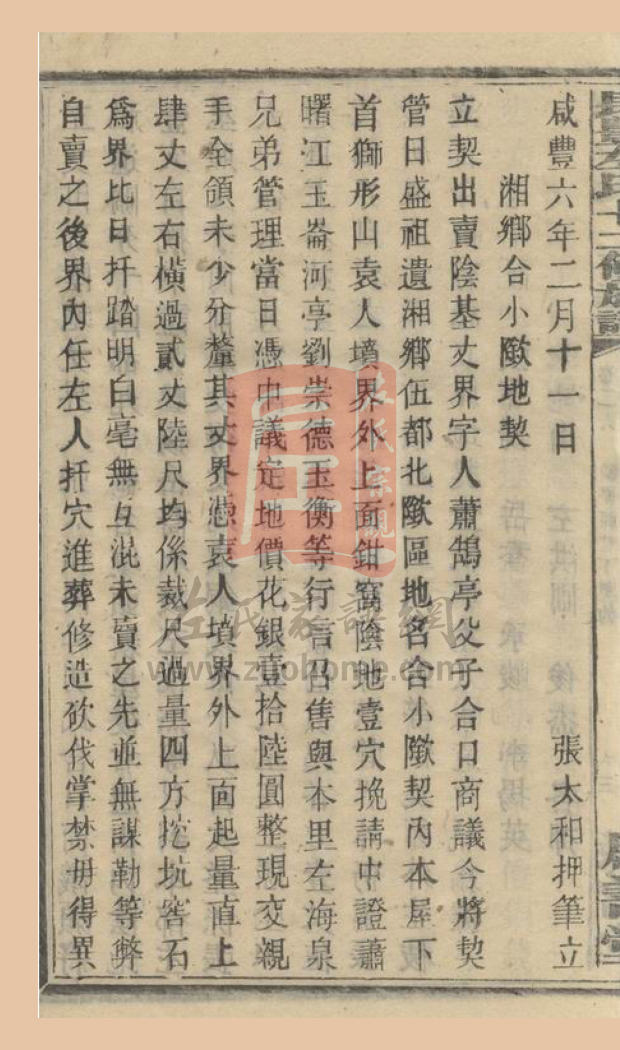 咸豐六年二月十一日　張太和押筆立
湘鄉合小歐地契
立契出賣陰基丈界字人蕭鵠亭父子合口商議今將契
管日盛祖遺湘鄉伍都北區地名合小契內本屋下
首獅形山袁人墳界外上面鉗窩陰地壹穴挽請中證蕭
曙江玉崙河亭劉崇德玉衡等行言召售與本里左海泉
兄弟管理當日憑中議定地價花銀壹拾陸圓整現交親
手全領未少分釐其丈界憑袁人墳界外上面起量直上
肆丈左右橫過貳丈陸尺均係裁尺過量四方挖坑窖石
爲界比日扦踏明白毫無互混未賣之先並無謀勒等弊
自賣之後界內任左人扦穴進葬修造砍伐掌禁毋得異
左氏宗親
左氏家譜網
www.zuohome.com